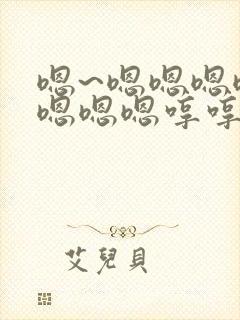 嗯~嗯嗯嗯
嗯嗯嗯哼哼
艾兒貝